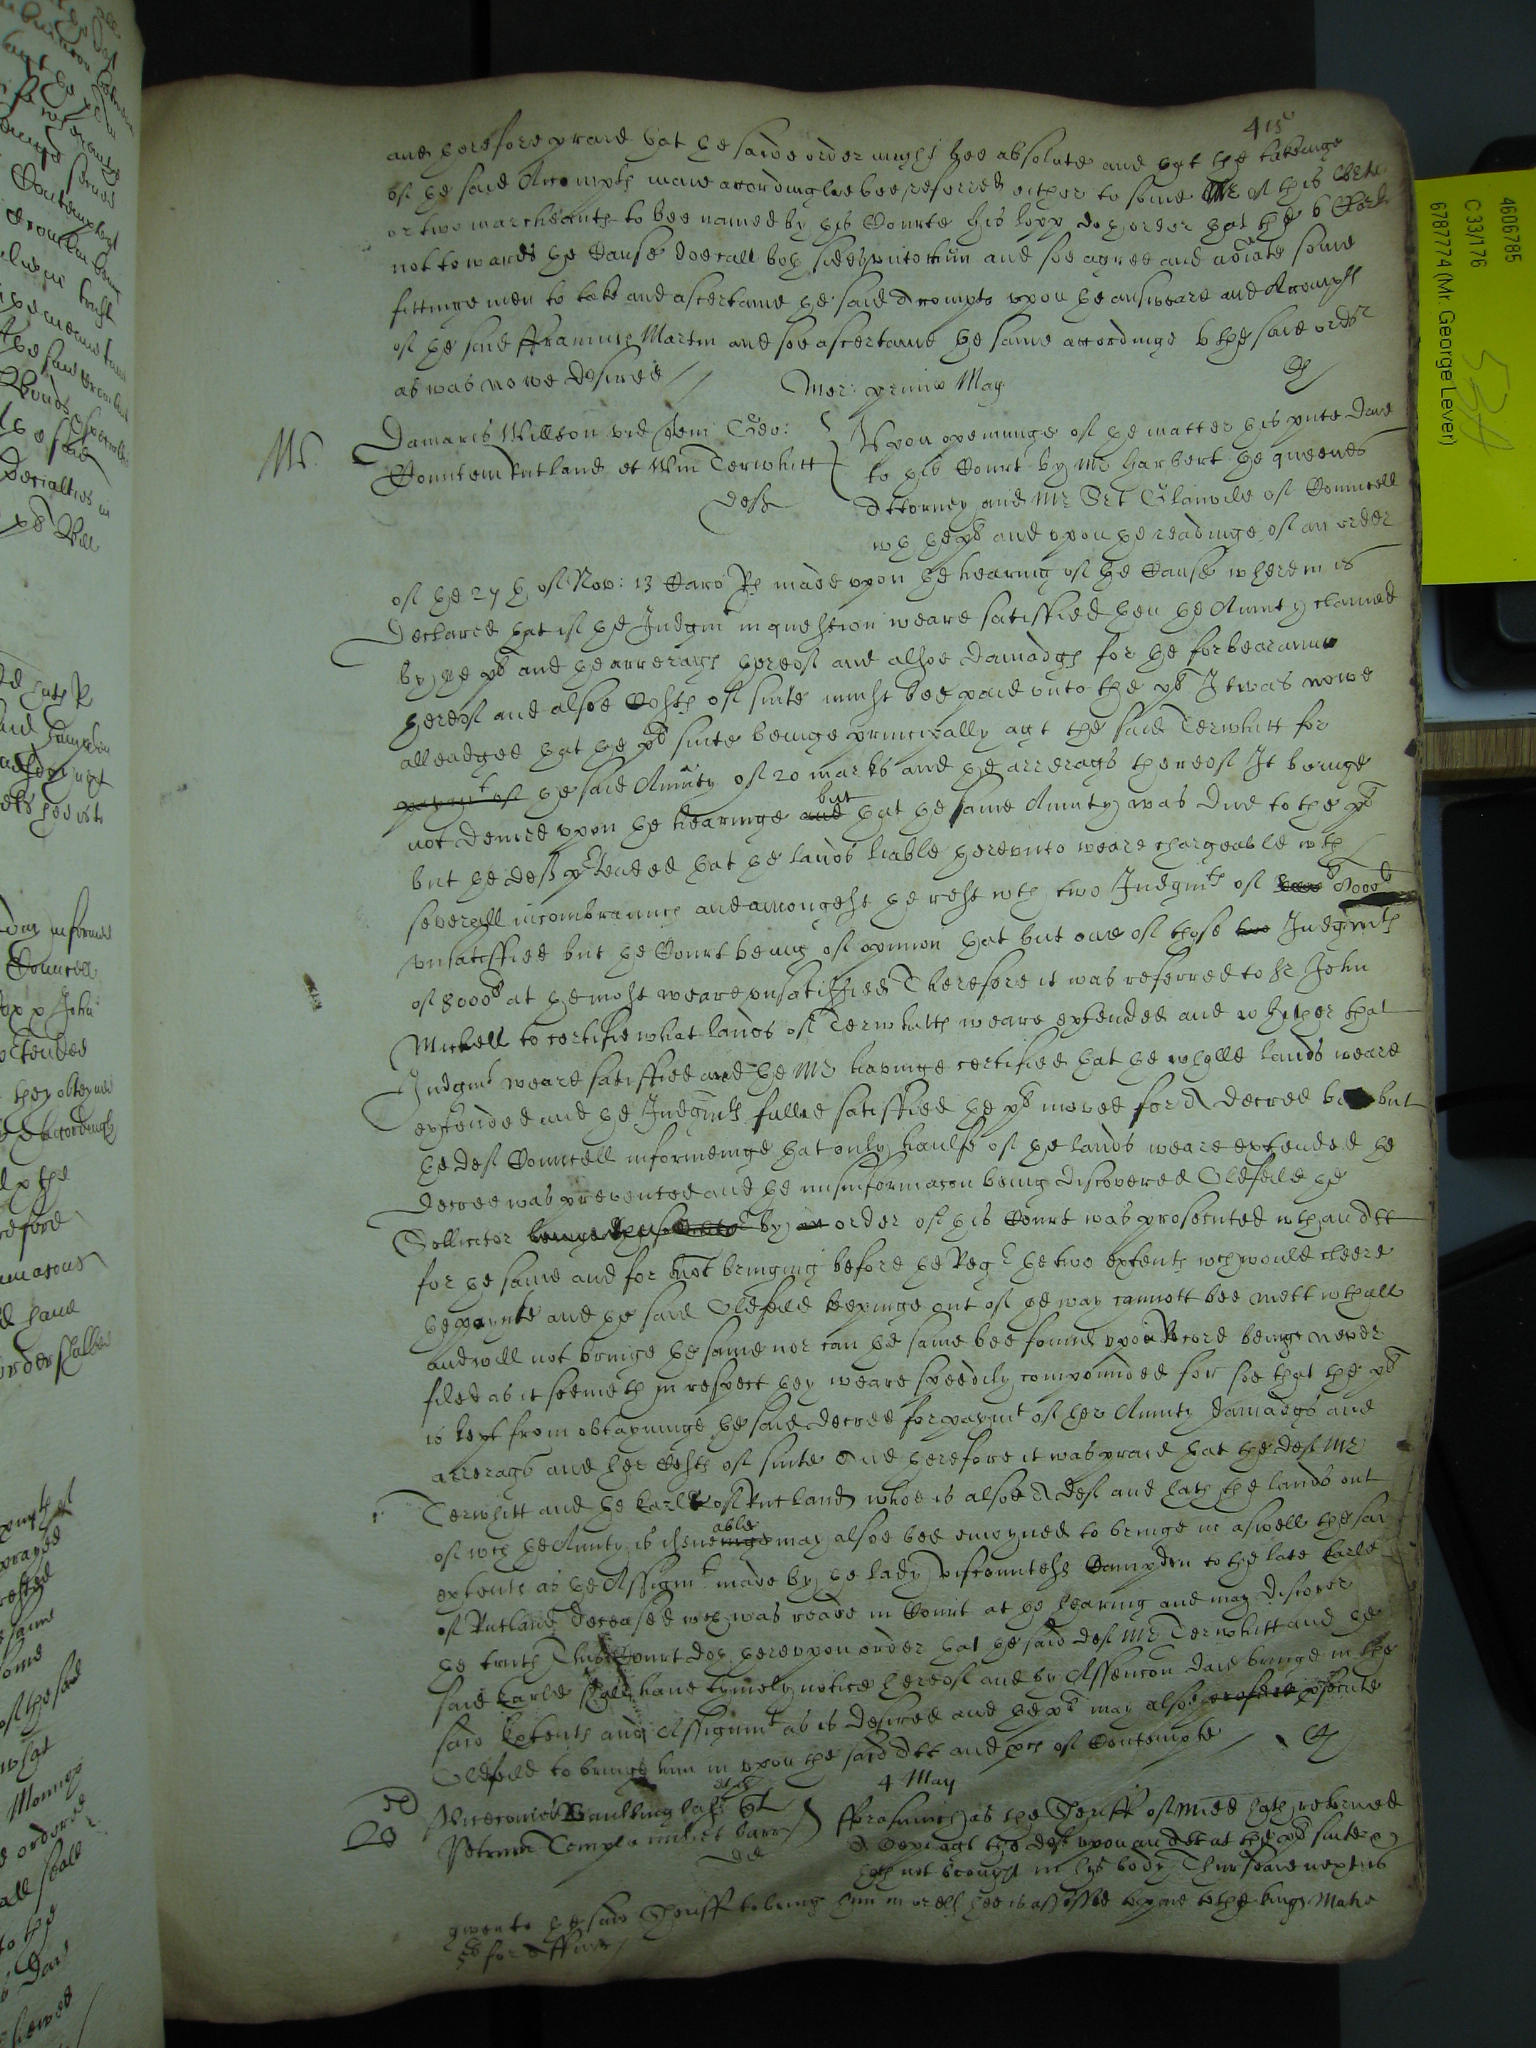 415
and therefore praied that the saide order might bee absolute and that the takeinge
of the said Accompts maie accordinglie bee referred either to some Mr of this Corte
or two marchaunts to bee named by this Courte his lopp doth order that the
not towards the Cause doe call both sides unto him and soe agree and some
fittinge men to take and ascertaine the said Accompts upon the answeare and Accompts
of the said Francis Martin and soe ascertaine the same accordinge to the said order
as was nowe desired
Mer: primo May
Mr.
Damaris Willson vid Geo:
Comitem Rutland et Wm Terwhitt
deft
Upon openinge of the matter this pnte daie
to this Court by Mr Harbert the queenes
Attorney and Mr Srt Glanvile of Councell
wth the pt and upon the readinge of an order
of the 27th of Nov: 13 Caro Rs made upon the hearing of the Cause wherein is
declared that if the Judgmt in question weare satisfied then the Anuity claimed
by the pt and the arrerags thereof and alsoe damadgs for the forbearance
thereof and alsoe Costs of suite must bee paid unto the pt It was nowe
alleadged that the pts suite beinge principally agt the said Terwhitt for
paymt of the said Anuity of 20 marks and the arrerags thereof It beinge
not denied upon the hearinge and but that the same Anuity was due to the pt
but the deft ptended that the lands liable thereunto weare chargeable wth
severall incombrances and amongest the rest wth two Judgmts of 8000l
unsatisfied but the Court being of opinion that but one of those two Judgmts
of 8000l at the most weare unsatisfied Therefore it was referred to Sr John
Michell to certifie what lands of Terwhitts weare extended and whether that
Judgmt weare satisfied and the Mr havinge certified that the wholle lands weare
extended and the Judgmts fullie satisfied the pt moved for a decree but
the deft Councell informeinge that only haulfe of the lands weare extended the
decree was prevented and the misinformacon being discovered Oldfeild the
Sollicitor by an order of this Court was prosecuted wth an Att
for the same and for not bringing before the Regr the two extents wch would cleere
the pointe and the said Oldfeild keepinge out of the way cannott bee mett withall
and will not bringe the same nor can the same bee found upon Record beinge never
filed as it seemeth in respect they weare speedily compounded for soe that the pt
is kept from obtayninge the said decree for paymt of her Anuity damadgs and
arrerags and her Costs of suite And therefore it was praied that the deft Mr
Terwhitt and the Earle of Rutland whoe is alsoe a deft and hath the lands out
of wch the Anuity is issueinge able may alsoe bee enioyned to bringe in aswell the said
extents as the Assignmt made by the lady viscountess Campden to the late Earle
of Rutland deceased wch was reade in Court at the hearing and may discover
the truth This Court doth thereupon order that the said deft Mr Terwhitt and the
said Earle shall have tymely notice hereof and by Assencon daie bringe in the
said Extents and Assignmt as is desired and the pt may alsoe prosecute
Oldfeild to bringe him in upon the said Att and pces of Contempte
4 May
Vicecomes
Petrum Temple milit barr
dd
Forasmuch as the Sheriff of Midd hath retorned
a Cepi agt the deft upon an Att at the pts suite
hath not brought in his body Thursdaie next is
given to the said Sheriff to bring him in or ells hee is assessed to paie to the kings Matie
5l for a ffine
4606785
C 33/176
6787774 (Mr. George Lever)